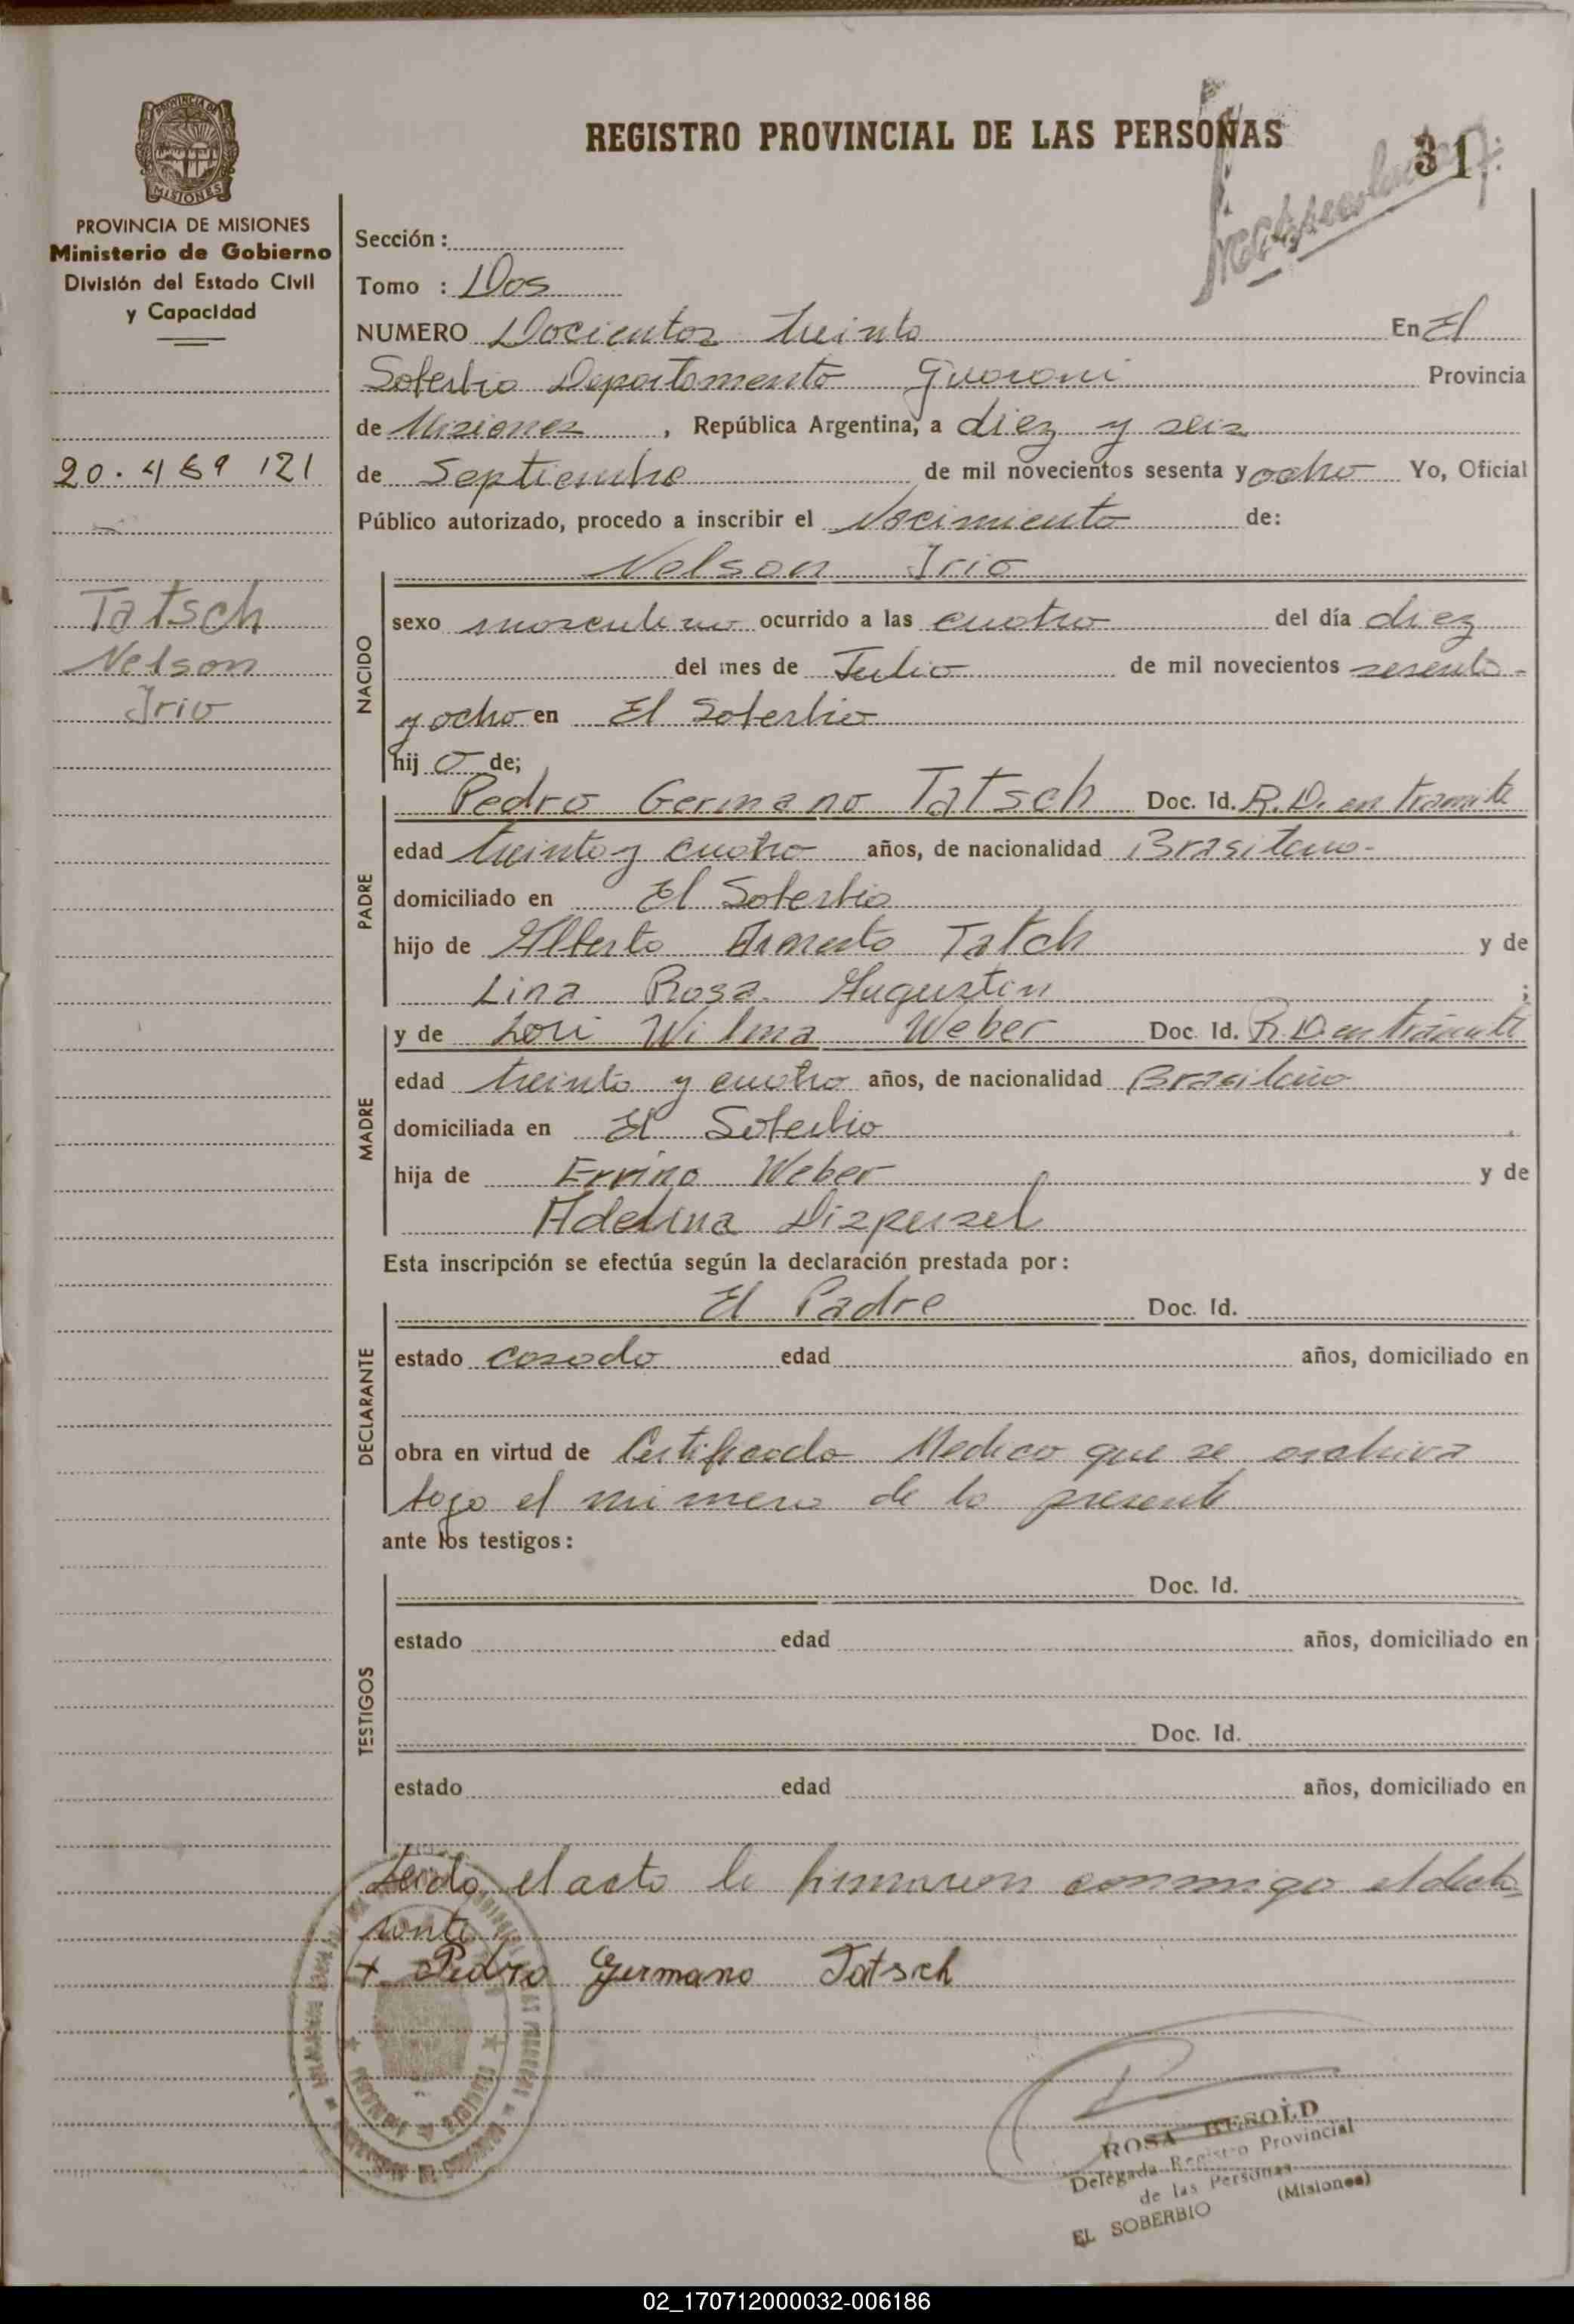 REGISTRO PROVINCIAL DE LAS PERSONAS
31
PROVINCIA DE MISIONES
Ministerio de Gobierno
División del Estado Civil
y Capacidad
20.469 121
Tatsch
Nelson
Irio
Sección :
Tomo : Dos
NUMERO Docientos treinta En El
Soberbio Departamento Guarani Provincia
de Misiones , República Argentina, a diez y seis
de Septiembre de mil novecientos sesenta y ocho Yo, Oficial
Público autorizado, procedo a inscribir el Nacimiento de:
Nelson Irio
NACIDO
sexo masculino ocurrido a las cuatro del día diez
del mes de Julio de mil novecientos sesenta
y ocho en El Soberbio
hij o de;
PADRE
Pedro Germano Tatsch Doc. Id. R.D. en tramite
edad treinta y cuatro años, de nacionalidad Brasilano-
domiciliado en El Soberbio
hijo de Alberto Ernesto Tatch y de
Lina Rosa Augustin ;
MADRE
y de Lori Wilma Weber Doc. Id. R.D. en trámite
edad treinta y cuatro años, de nacionalidad
domiciliada en El Soberbio
hija de Ervino Weber y de
Adelina
Esta inscripción se efectúa según la declaración prestada por :
DECLARANTE
El Padre Doc. Id.
estado casado edad años, domiciliado en
obra en virtud de Certificado Medico que se archiva
bajo el numero de la presente
ante los testigos :
TESTIGOS
Doc. Id.
estado edad años, domiciliado en
Doc. Id.
estado edad años, domiciliado en
Leida el acta la firmaron conmigo el decla
rante
+ Pedro Germano Tatsch
ROSA RESOLD
Delegada Registro Provincial
de las Personas
EL SOBERBIO (Misiones)
02_170712000032-006186